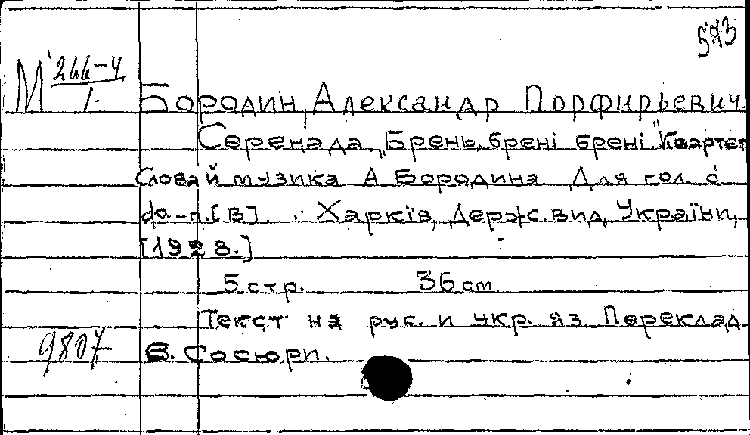 593
М 266-4
1.
Бородин, Александр Порфирьевич
Серенада „Брень, брені брені." Квартет
Слова й музика А Бородина Для гол. с
ф-п. [В]. Харків, Держ. вид. України,
[1928.]
5 стр. 36 cm
Текст на рус. и укр. яз. Переклад
В. Сосюри.
9807